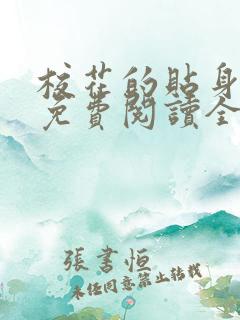 校花的貼身
免費閱讀全
張書恒
未經同意禁止轉載